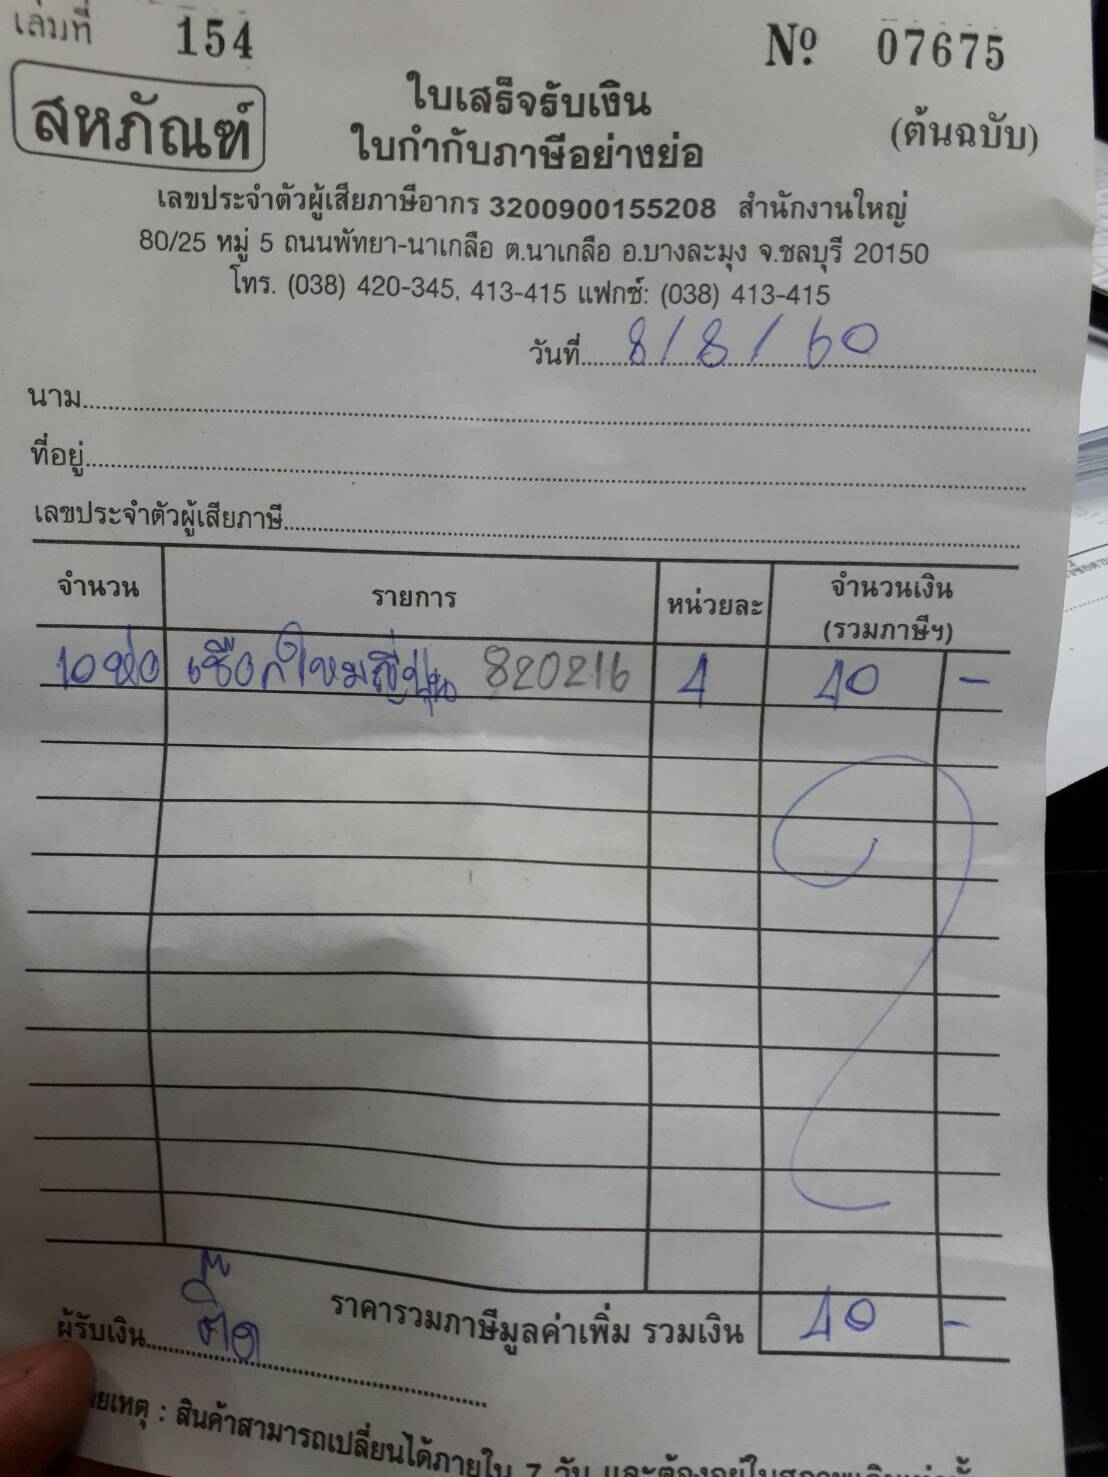 เล่มที่ 154 Nº 07675
สหภัณฑ์
ใบเสร็จรับเงิน
ใบกำกับภาษีอย่างย่อ
(ต้นฉบับ)
เลขประจำตัวผู้เสียภาษีอากร 3200900155208 สำนักงานใหญ่
80/25 หมู่ 5 ถนนพัทยา-นาเกลือ ต.นาเกลือ อ.บางละมุง จ.ชลบุรี 20150
โทร. (038) 420-345, 413-415 แฟกซ์: (038) 413-415
วันที่ 8/8/60
นาม
ที่อยู่
เลขประจำตัวผู้เสียภาษี
จำนวน รายการ หน่วยละ จำนวนเงิน (รวมภาษีฯ)
10 ห่อ เชือกไหมญี่ปุ่น 820216 4 40 -
ราคารวมภาษีมูลค่าเพิ่ม รวมเงิน 40 -
ผู้รับเงิน
: สินค้าสามารถเปลี่ยนได้ภายใน 7 วัน และต้องอยู่ในสภาพเดิมเท่านั้น